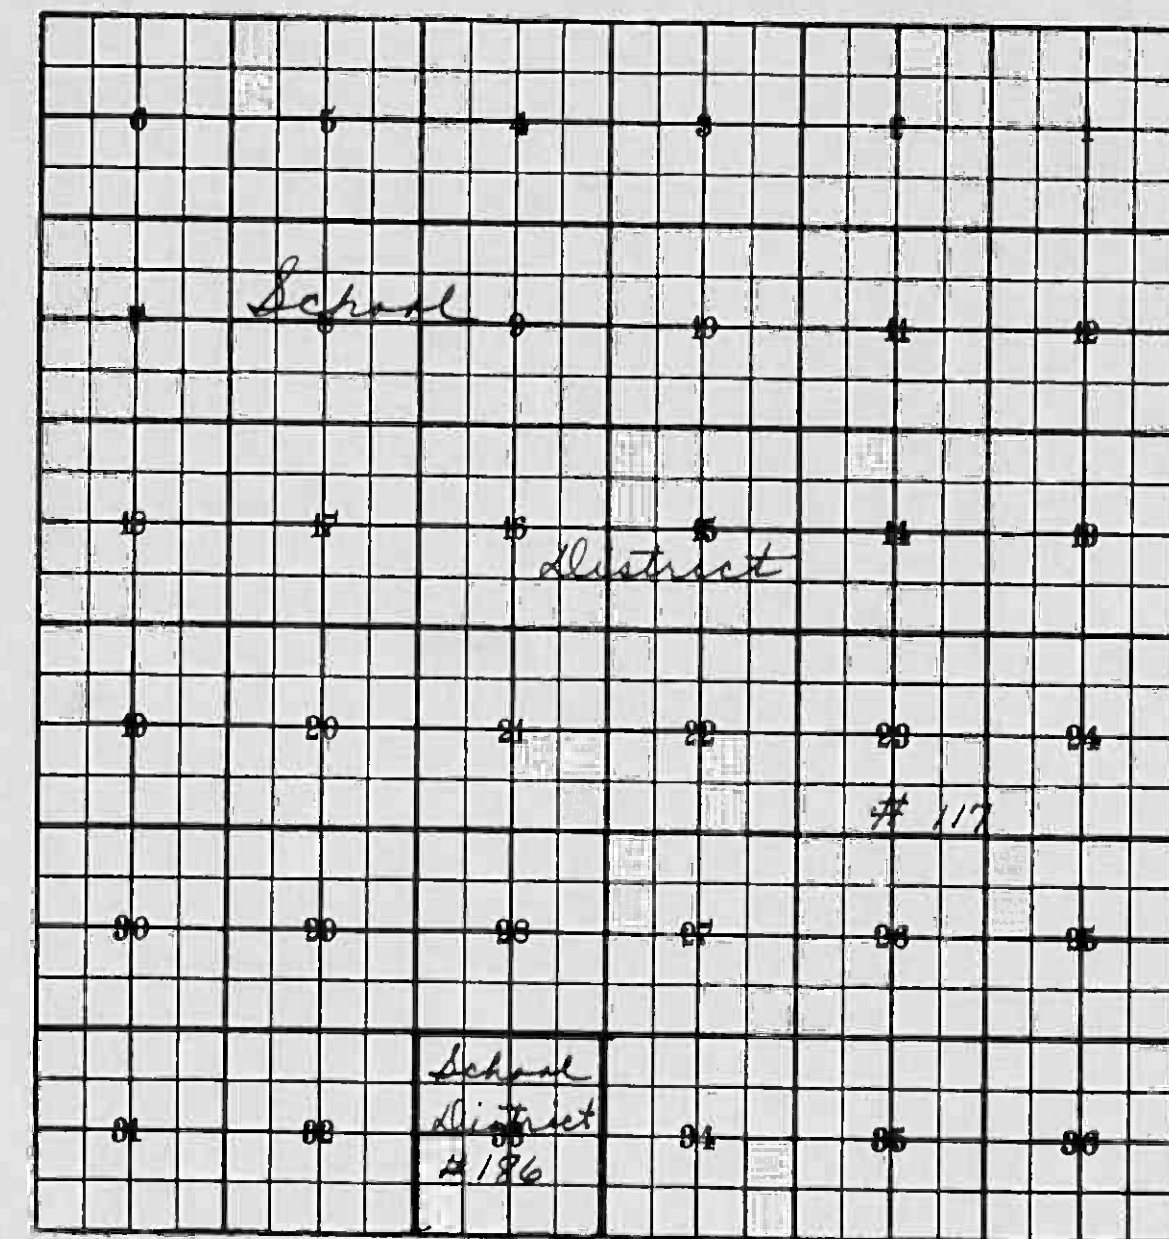 6 5 4 3 2 1
School
7 8 9 10 11 12
18 17 16 15 14 13
District
19 20 21 22 23 24
# 117
30 29 28 27 26 25
School
District
31 32 33 34 35 36
# 186